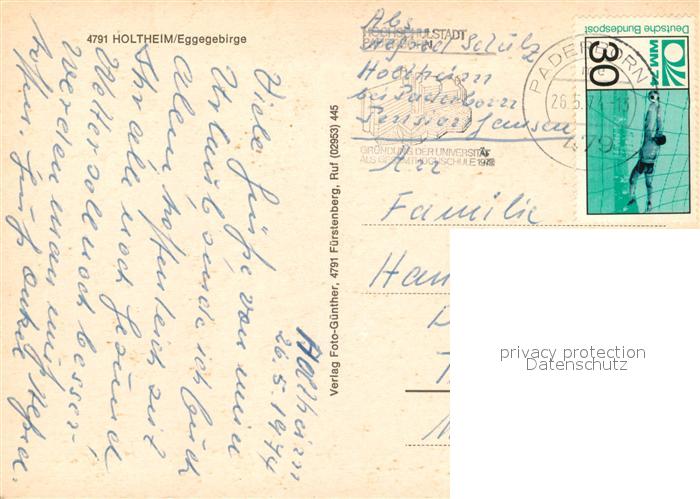 4791 HOLTHEIM/Eggegebirge
Holtheim
26.5.1974
Viele Grüße von mein
Urlaub sende ich Euch
allen hoffentlich seit
Ihr alle noch gesund
Wetter soll noch besser
werden wan muß
hoffen. Gruß Onkel
Verlag Foto-Günther, 4791 Fürstenberg, Ruf (02953) 445
Abs
Schulz
Holtheim
bei Paderborn
Pension Jansen
HOCHSCHULSTADT
PADERBORN
GRÜNDUNG DER UNIVERSITÄT
ALS GESAMTHOCHSCHULE 1972
PADERBORN
26.5.74
479
Deutsche Bundespost
WM 74
30
An
Familie
Han
privacy protection
Datenschutz